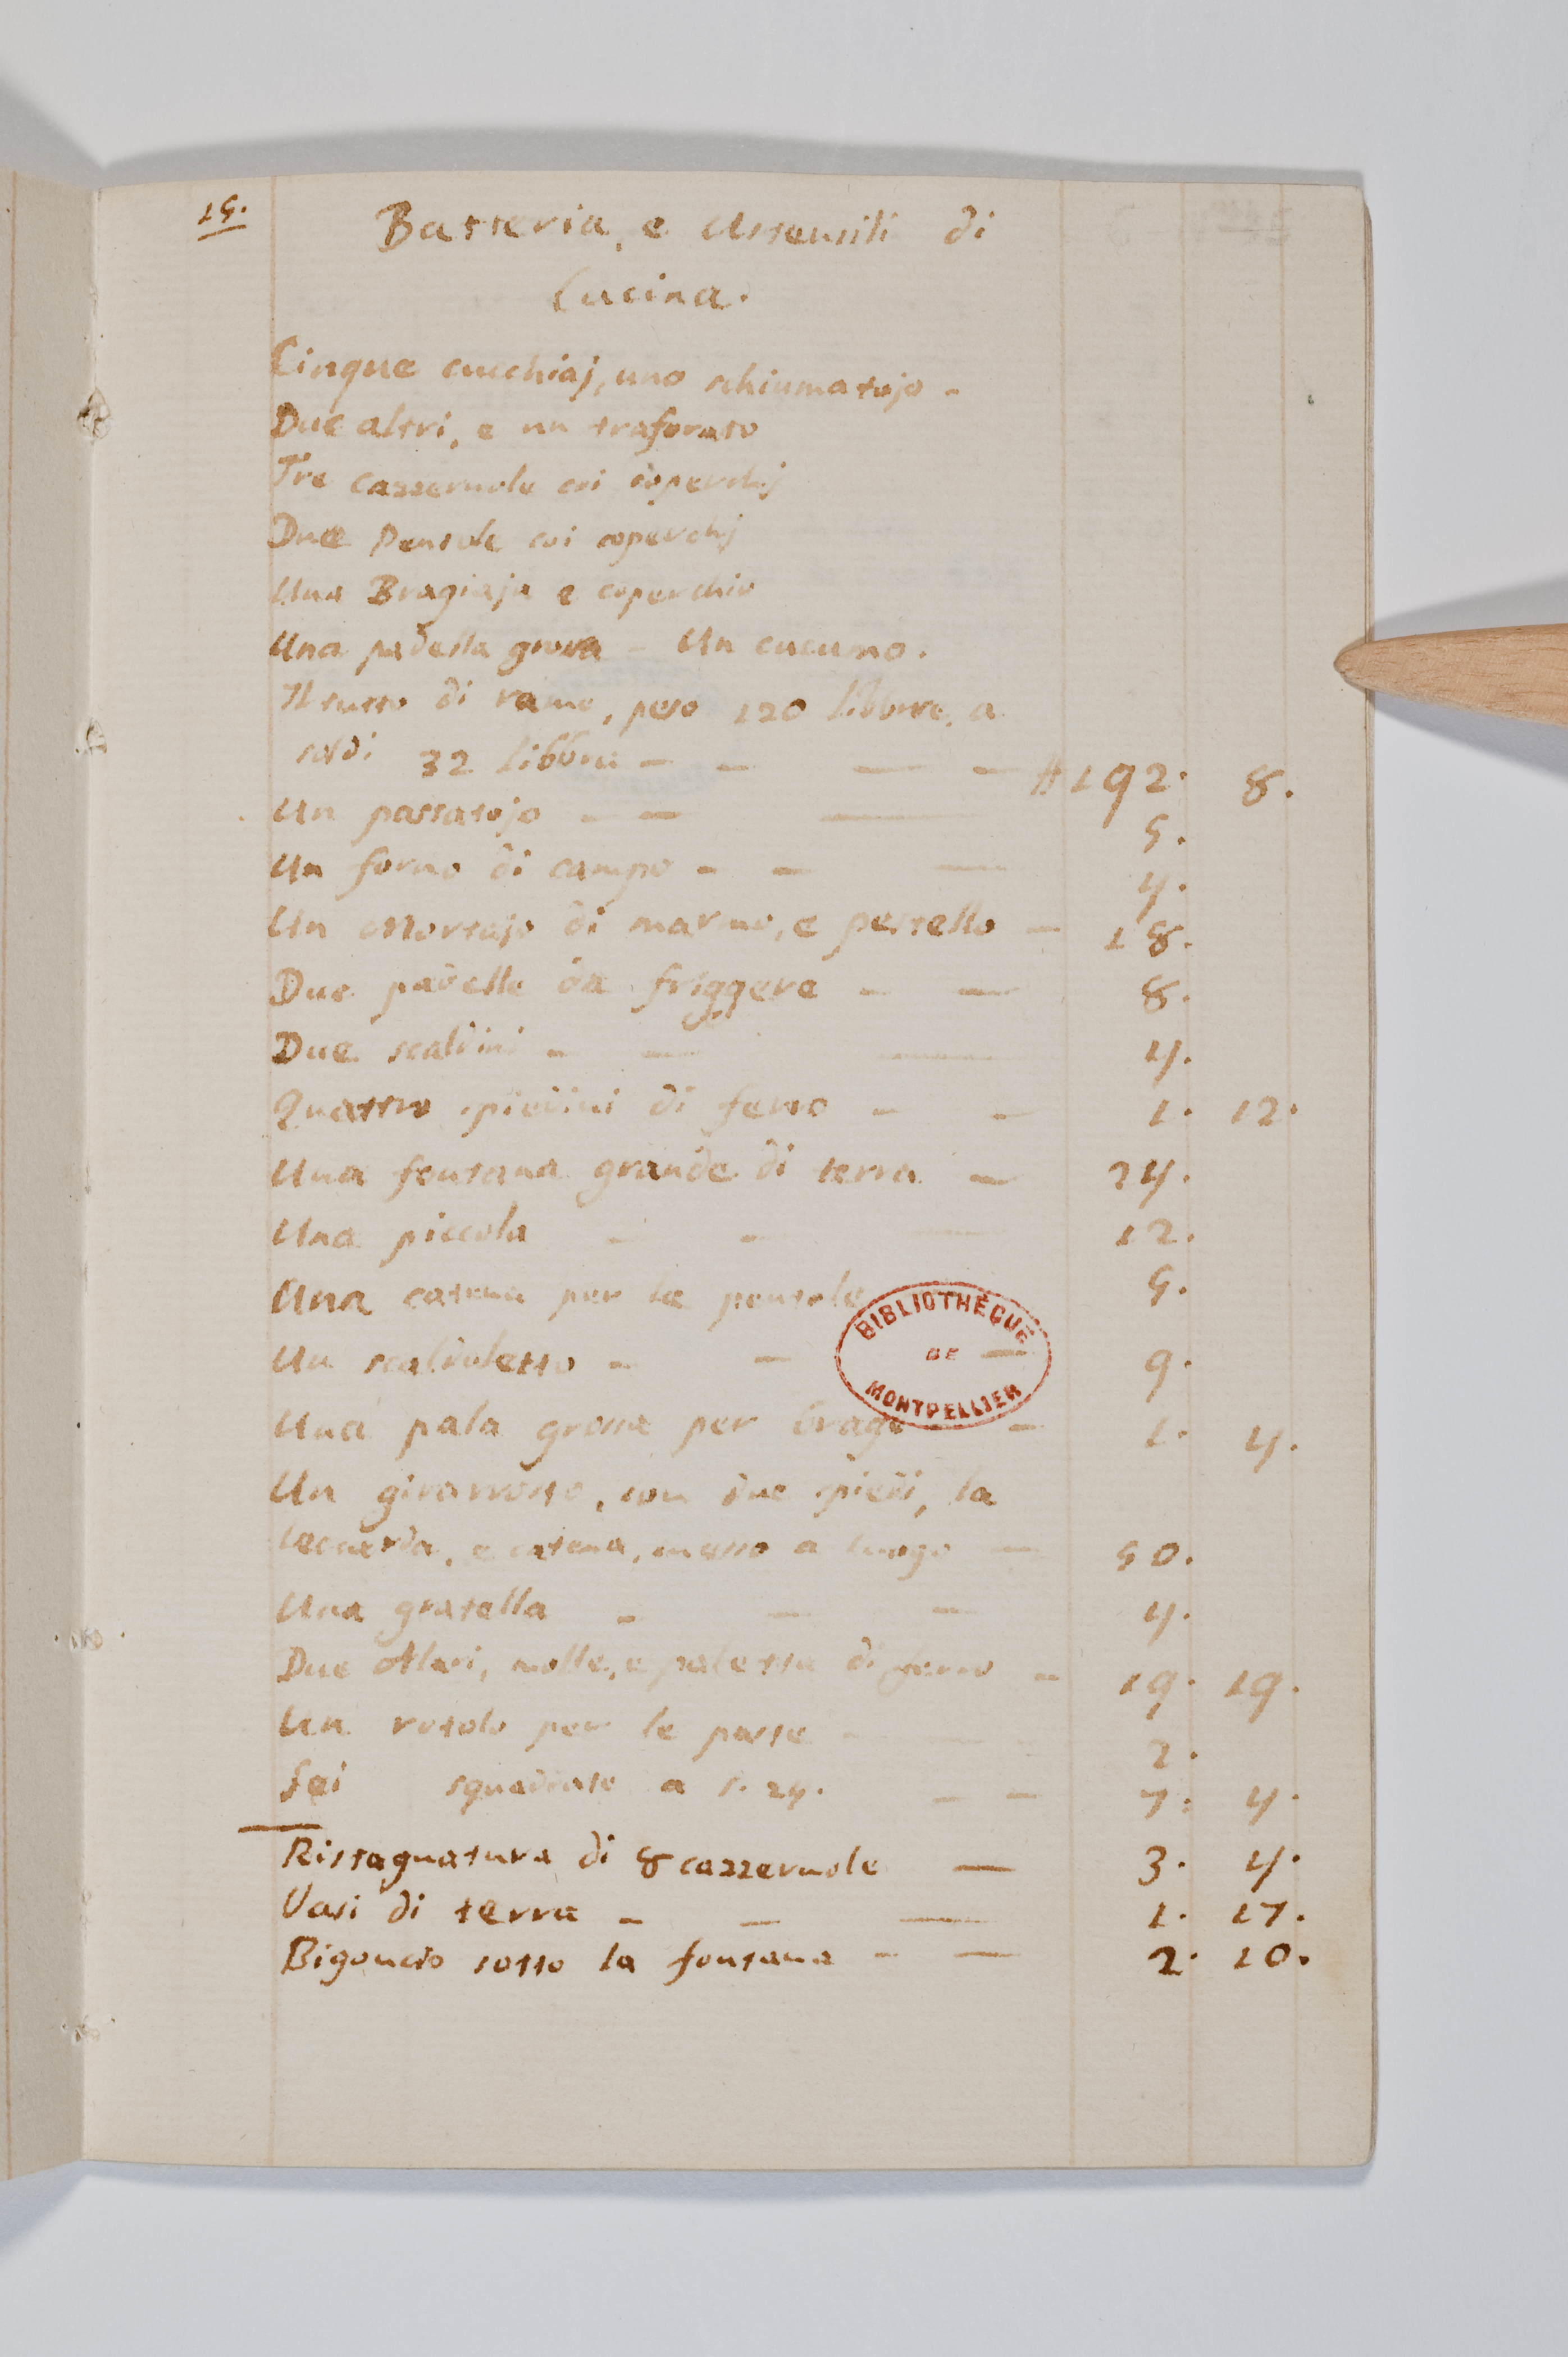 15.
Batteria, e Utensili di
Cucina.
Cinque cucchiaj, uno schiumatojo -
Due altri, e un traforato
Tre cazzeruole coi coperchj
Due Pentole coi coperchj
Una Bragiaja e coperchio
Una padella grossa - Un cucumo.
Il tutto di rame, peso 120 libbre, a
soldi 32 libbra - - — — # 192. 8.
Un passatojo - - — 5.
Un forno di campo - - — 4.
Un Mortajo di marmo, e pestello - 18.
Due padelle da friggere - — 8.
Due scaldini - — — 4.
Quattro spiedini di ferro - - 1. 12.
Una fontana grande di terra — 24.
Una piccola - - — 12.
Una catena per le pentole 5.
Un scaldaletto - - — 9.
Una pala grossa per brage - 1. 4.
Un girarrosto, con due spiedi, la
leccarda, e catena, messo a luogo — 50.
Una gratella - — — 4.
Due Alari, molle, e paletta di ferro - 19. 19.
Un rotolo per le paste - — 2.
Sei squadrate a s. 24. - - 7. 4.
Ristagnatura di 8 cazzeruole — 3. 4.
Vasi di terra - — — 1. 17.
Bigoncio sotto la fontana - — 2. 10.
BIBLIOTHÈQUE
DE
MONTPELLIER